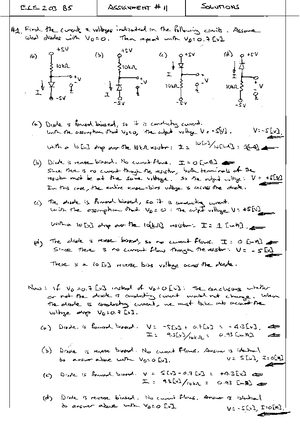 ECE 203 B5 ASSIGNMENT #11 SOLUTIONS
#1. Find the current & voltages indicated in the following circuits. Assume
ideal diodes with VD=0. Then repeat with VD=0.7[V].
(a) +5V (b) +5V (c) +5V (d) +5V
10kΩ 10kΩ
V V V V
I I I I
-5V -5V -5V -5V
(a) Diode is forward biased, so it is conducting current.
With the assumption that VD=0, the output voltage V=-5[V]. V=-5[V]
With a 10[V] drop over the 10kΩ resistor: I = 10[V]/10[kΩ] = 1[mA]
(b) Diode is reverse biased: No current flows. I=0[mA]
Since there is no current through the resistor, both terminals of the
resistor must be at the same voltage. So the output voltage V = +5[V]
In this case, the entire reverse-bias voltage is across the diode.
(c) The diode is forward biased, so it is conducting current.
With the assumption that VD=0: the output voltage V=+5[V]
With a 10[V] drop over the 10[kΩ] resistor: I = 1[mA].
(d) The diode is reverse biased, so no current flows: I = 0[mA]
Since there is no current flow through the resistor: V = -5[V]
There is a 10[V] reverse bias voltage across the diode.
Now: if VD=0.7[V] instead of VD=0[V]: The conclusions whether
or not the diode is conducting current would not change. When
the diode is conducting current, we must take into account the
voltage drop VD=0.7[V].
(a) Diode is forward biased. V = -5[V] + 0.7[V] = -4.3[V].
I = 9.3[V]/10kΩ = 0.93[mA]
(b) Diode is reverse biased. No current flows. Answer is identical
to answer above with VD=0[V]. V=5[V], I=0[mA]
(c) Diode is forward biased: V = 5[V]-0.7[V] = +4.3[V]
I = 9.3[V]/10kΩ = 0.93[mA]
(d) Diode is reverse biased. No current flows. Answer is identical
to answer above with VD=0[V]. V=-5[V], I=0[mA].